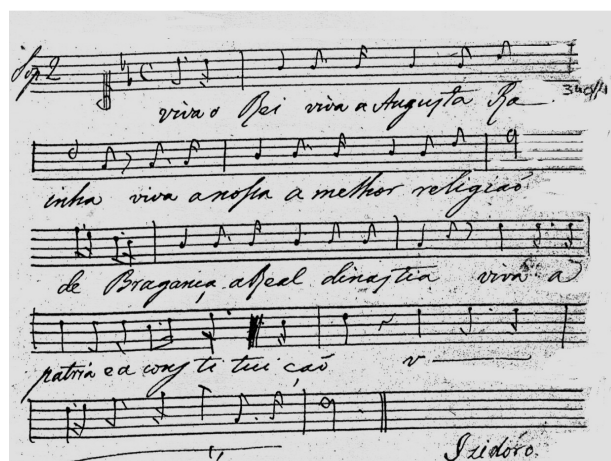 Sop. 2
viva o Rei viva a Augusta Ra
inha viva a nossa a melhor religiaõ
de Bragança a Real dinastia viva a
patria e a cons ti tui çaõ v
Izidoro.